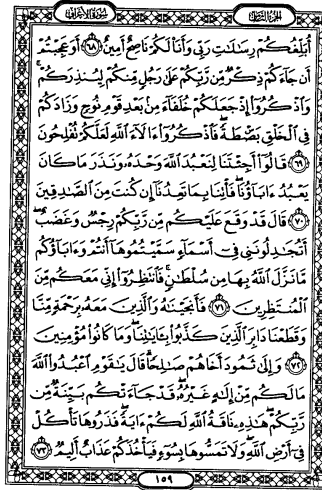 الجزء الثامن سورة الأعراف
أُبَلِّغُكُمْ رِسَالَاتِ رَبِّي وَأَنَا لَكُمْ نَاصِحٌ أَمِينٌ ٦٨ أَوَعَجِبْتُمْ
أَن جَاءَكُمْ ذِكْرٌ مِّن رَّبِّكُمْ عَلَى رَجُلٍ مِّنكُمْ لِيُنذِرَكُمْ
وَاذْكُرُوا إِذْ جَعَلَكُمْ خُلَفَاءَ مِن بَعْدِ قَوْمِ نُوحٍ وَزَادَكُمْ
فِي الْخَلْقِ بَصْطَةً فَاذْكُرُوا ءَالَاءَ اللَّهِ لَعَلَّكُمْ تُفْلِحُونَ
٦٩ قَالُوا أَجِئْتَنَا لِنَعْبُدَ اللَّهَ وَحْدَهُ وَنَذَرَ مَا كَانَ
يَعْبُدُ ءَابَاؤُنَا فَأْتِنَا بِمَا تَعِدُنَا إِن كُنتَ مِنَ الصَّادِقِينَ
٧٠ قَالَ قَدْ وَقَعَ عَلَيْكُم مِّن رَّبِّكُمْ رِجْسٌ وَغَضَبٌ
أَتُجَادِلُونَنِي فِي أَسْمَاءٍ سَمَّيْتُمُوهَا أَنتُمْ وَءَابَاؤُكُم
مَّا نَزَّلَ اللَّهُ بِهَا مِن سُلْطَانٍ فَانتَظِرُوا إِنِّي مَعَكُم مِّنَ
الْمُنتَظِرِينَ ٧١ فَأَنجَيْنَاهُ وَالَّذِينَ مَعَهُ بِرَحْمَةٍ مِّنَّا
وَقَطَعْنَا دَابِرَ الَّذِينَ كَذَّبُوا بِـَٔايَاتِنَا وَمَا كَانُوا مُؤْمِنِينَ
٧٢ وَإِلَى ثَمُودَ أَخَاهُمْ صَالِحًا قَالَ يَاقَوْمِ اعْبُدُوا اللَّهَ
مَا لَكُم مِّنْ إِلَهٍ غَيْرُهُ قَدْ جَاءَتْكُم بَيِّنَةٌ مِّن
رَّبِّكُمْ هَذِهِ نَاقَةُ اللَّهِ لَكُمْ ءَايَةً فَذَرُوهَا تَأْكُلْ
فِي أَرْضِ اللَّهِ وَلَا تَمَسُّوهَا بِسُوءٍ فَيَأْخُذَكُمْ عَذَابٌ أَلِيمٌ ٧٣
١٥٩